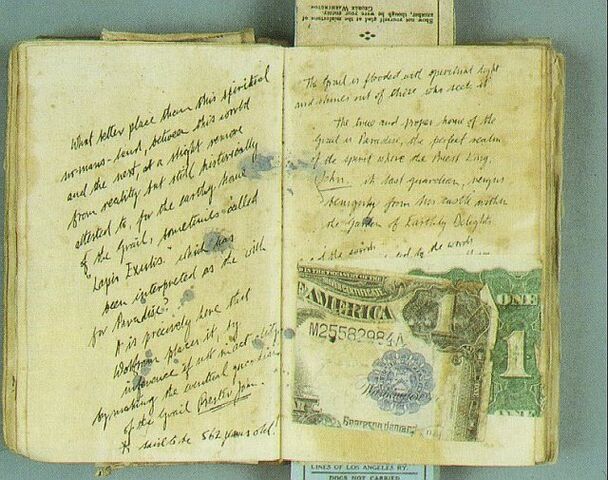 Show not yourself glad at the misfortune of
another, though he were your enemy.
GEORGE WASHINGTON
What better place then this spiritual
no-mans-land, between this world
and the next, at a slight remove
from reality but still historically
attested to, for the earthly home
of the Grail, sometimes called
"Lapis Exulis." which has
been interpreted as the with
for Paradise?
It is precisely here that
Wolfram places it, by
inference if not in actuality
by making the eventual guardian
of the Grail Prester John.
is said to be 562 years old!
The Grail is flooded with spiritual light
and shines out of those who seek it.
The true and proper home of the
Grail is Paradise, the perfect realm
of the spirit where the Priest King,
John, its last guardian, reigns
benignly from his castle within
the Garden of Earthly Delights
and the words
AMERICA
M25582984A
1
ONE
1
LINES OF LOS ANGELES RY.
DOGS NOT CARRIED